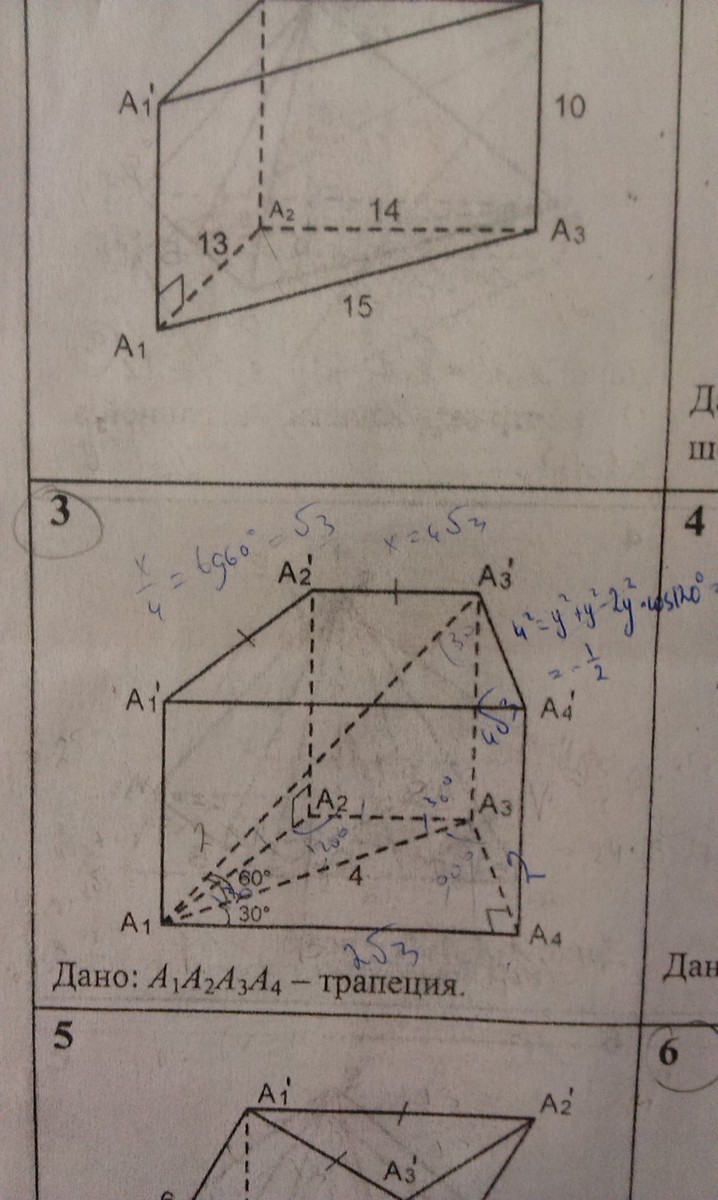 A₁'
10
A₂
14
13
A₃
15
A₁
Д
ш
3
x/4 = tg60° = √3
x = 4√3
4
A₂'
A₃'
4² = y² + y² - 2y² · cos120° =
= -1/2
A₁'
A₄'
A₂
A₃
30°
120°
60°
4
90°
30°
A₁
2√3
A₄
Дано: A₁A₂A₃A₄ – трапеция.
Дан
5
6
A₁'
A₂'
A₃'
6